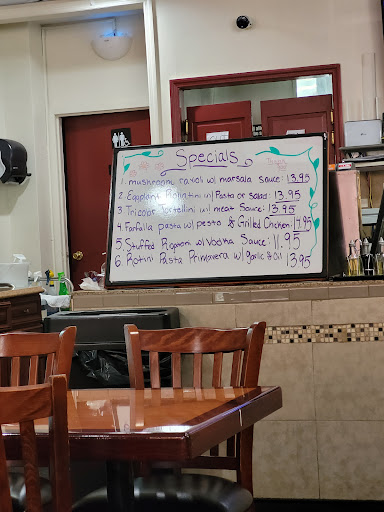 Specials
1. mushroom raviol w/ marsala sauce: 13.95
2. Eggplant Rollatini w/ Pasta or salad: 13.95
3. Tricolor Tortellini w/ meat Sauce: 13.95
4. Farfalla pasta w/ pesto & Grilled Chicken: 14.95
5. Stuffd Rigatoni w/ Vodka Sauce: 11.95
6. Rotini Pasta Primavera w/ garlic & oil 13.95